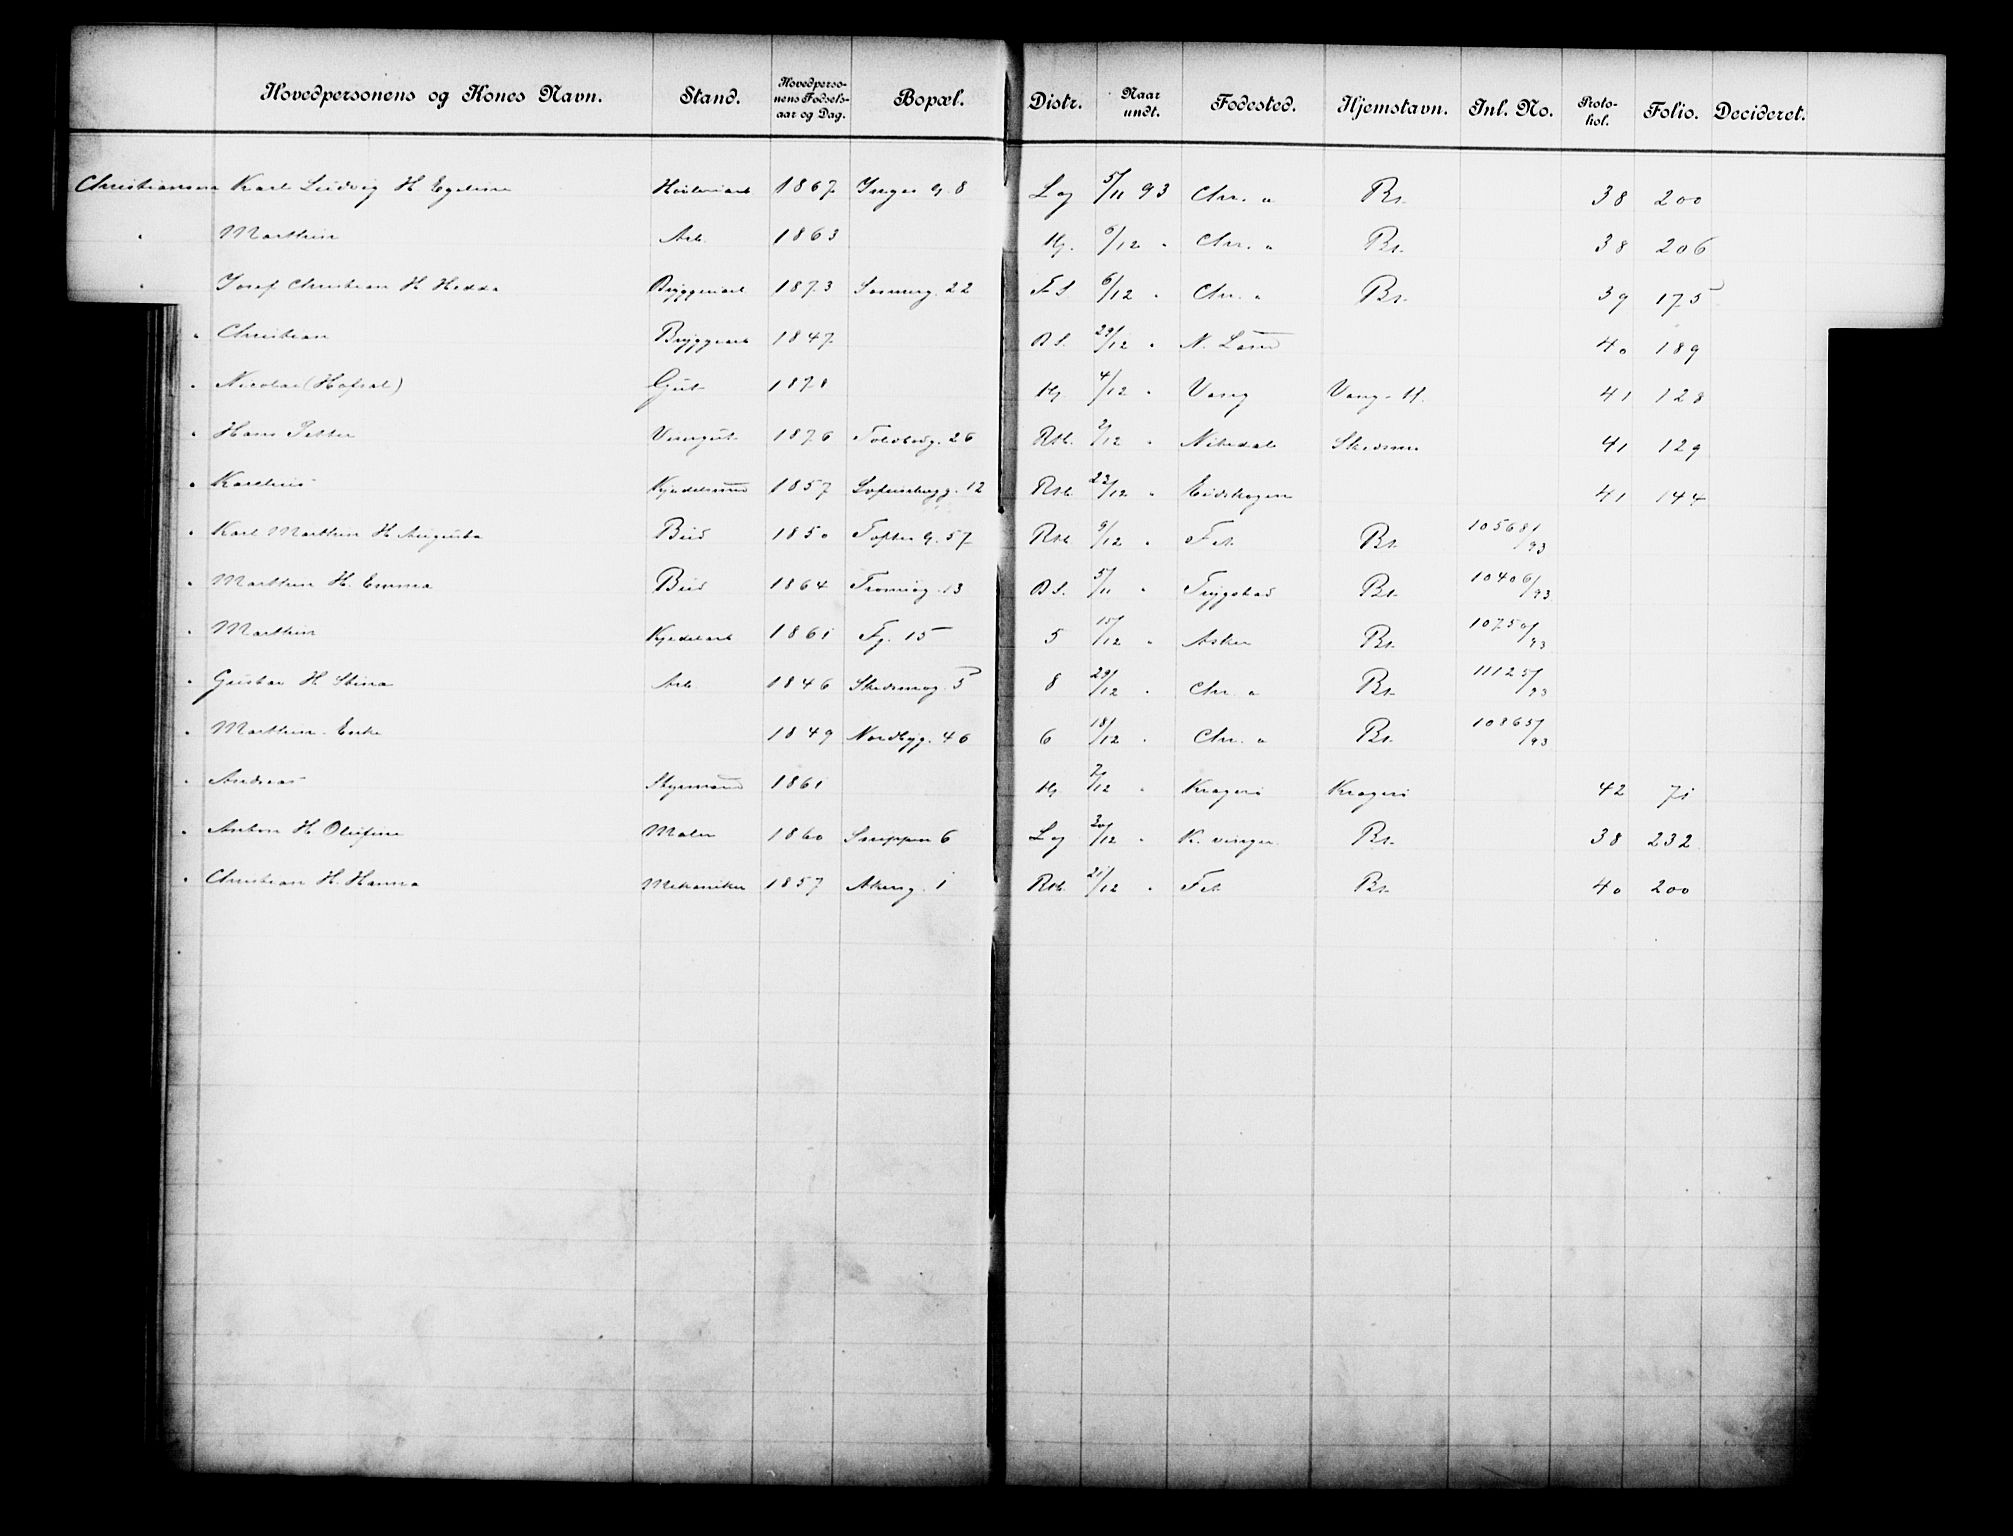 Hovedpersonens og Kones Navn. Stand. Hovedperso-nens Fødsels-aar og Dag. Bopæl. Distr. Naar undt. Fødested. Hjemstavn. Inl. No. Proto-kol. Folio. Decideret.
Christiansen Karl Ludvig H Egeline 1867 Inges g. 8 Lg 5/11 93 Chr. a Bt. 38 200
" Marthin Arb. 1863 Hj. 6/12 " Chr. a Bt. 38 206
" Josef Christian H Hedda Bryggeriarb 1873 22 FS 6/12 " Chr. a Bt. 39 175
" Christian Bryggearb 1847 BS. 29/12 " N. Land 40 189
" Nicolai (Hofsal) Gut 1878 Hj. 4/12 " Vang Vang H. 41 128
" Hans Petter Visergut 1876 Toldbodg. 26 Rtb. 2/12 " Nitedal Skedsmo 41 129
" Karelius Kjedelsmed 1857 Sofienbergg. 12 Rtb. 22/12 " Eidskogen 41 144
" Karl Marthin H Augusta Bud 1850 Toftes g. 57 Rtb. 9/12 " Fet. Bt. 10568/93
" Marthin H. Emma Bud 1864 Tromsøg. 13 BS. 5/11 " Trygstad Bt. 10406/93
" Marthin Kjedelarb 1861 Fg. 15 5 15/12 " Asker Bt. 10750/93
" Gustav H Stina Arb 1846 Skedsmog. 5 8 29/12 " Chr. a Bt. 11125/93
" Marthin. Enke 1849 Nordbyg. 46 6 18/12 " Chr. a Bt. 10865/93
" Andreas Styrmand 1861 Hj 7/12 " Kragerø Kragerø 42 71
" Anton H. Olufine Maler 1860 Snippen 6 Lg 20/12 " K. vinger Bt. 38 232
" Christian H. Hanna Mekaniker 1857 Akersg. 1 Rtb. 21/12 " Fet. Bt. 40 200